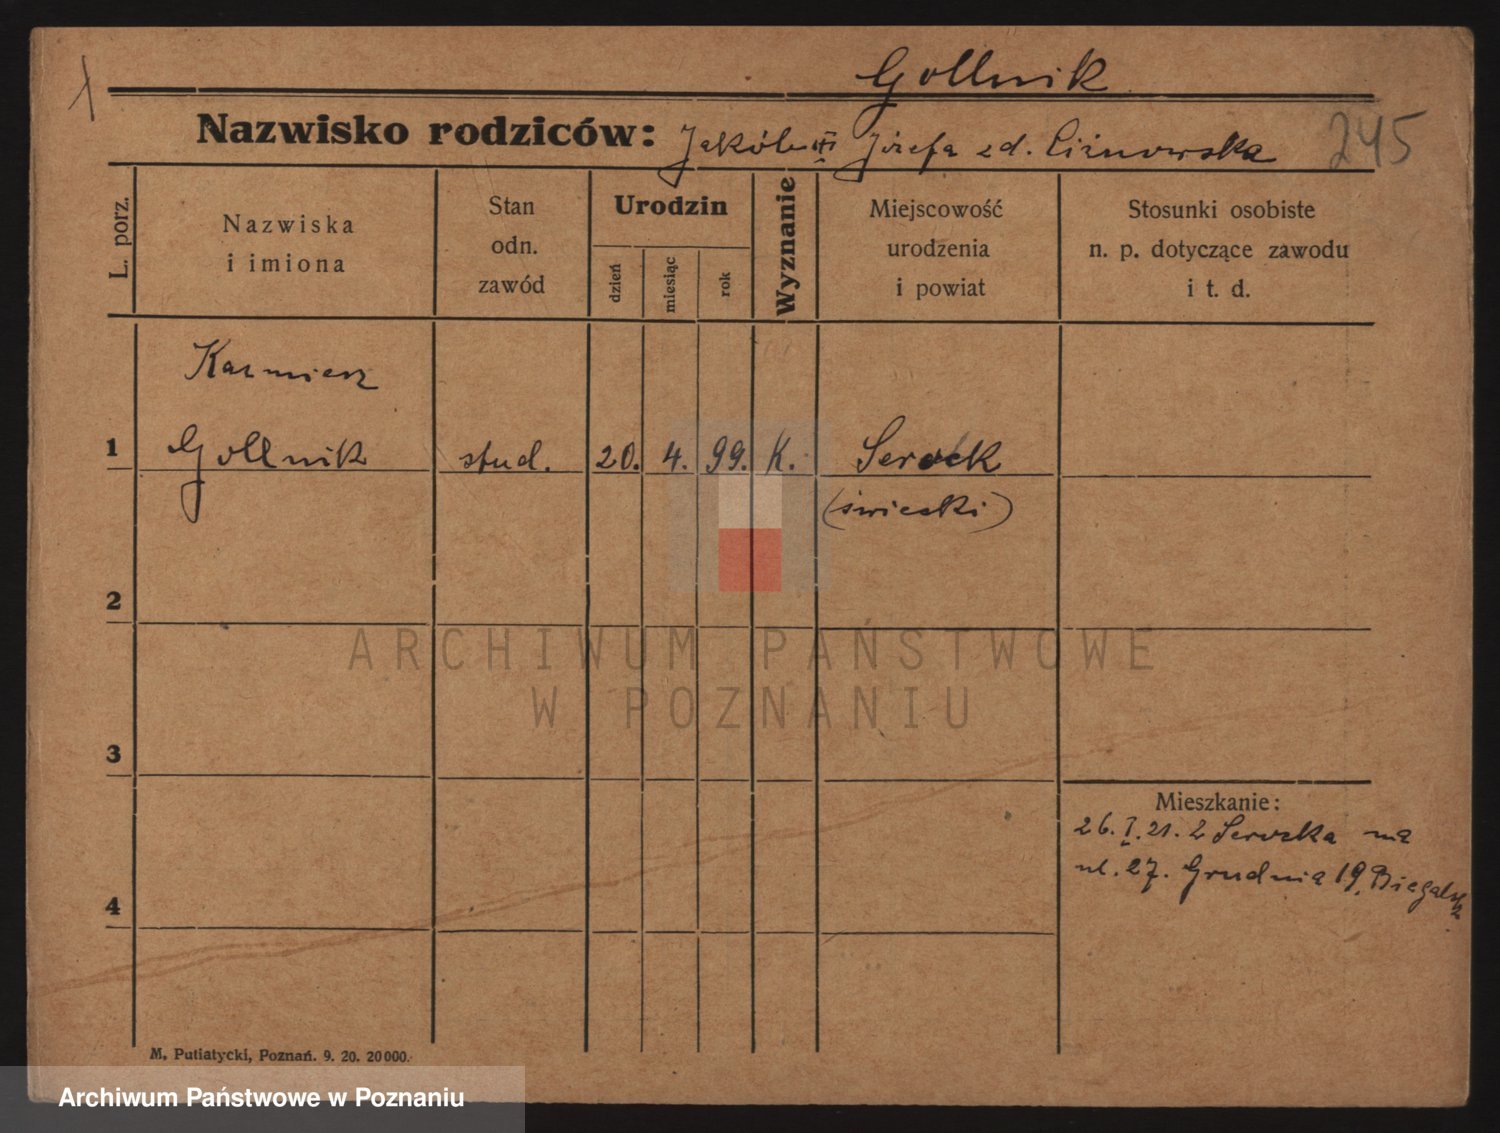 Gollnik
Nazwisko rodziców: Jakób i Józefa zd. Liznowska 245
L. porz.
Nazwiska
i imiona
Stan
odn.
zawód
Urodzin
dzień
miesiąc
rok
Wyznanie
Miejscowość
urodzenia
i powiat
Stosunki osobiste
n. p. dotyczące zawodu
i t. d.
Kazmierz
1 Gollnik stud. 20. 4. 99. K. Serock
(świecki)
2
ARCHIWUM PAŃSTWOWE
W POZNANIU
3
Mieszkanie:
26. I. 21. z Serocka na
ul. 27. Grudnia 19,
4
M. Putiatycki, Poznań. 9. 20. 20000.
Archiwum Państwowe w Poznaniu